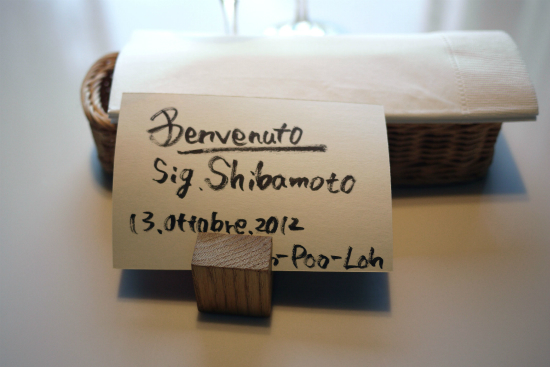 Benvenuto
Sig. Shibamoto
13. ottobre. 2012
-Poo-Loh